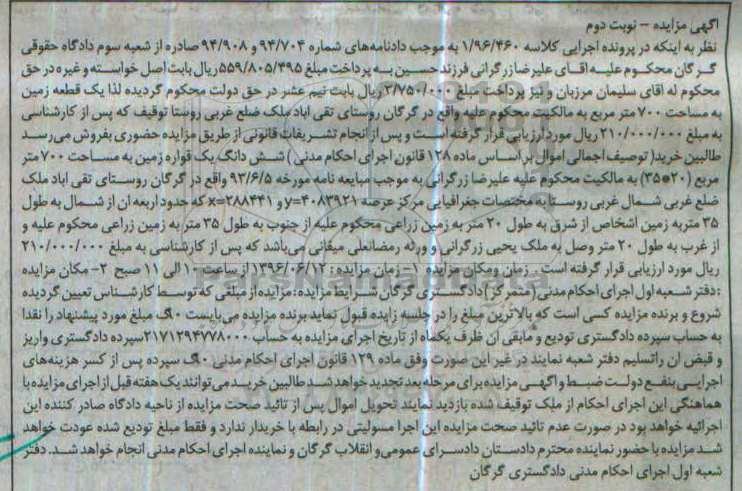 آگهی مزایده – نوبت دوم
نظر به اینکه در پرونده اجرایی کلاسه ۱/۹۶/۴۶۰ به موجب دادنامه‌های شماره ۹۴/۷۰۴ و ۹۴/۹۰۸ صادره از شعبه سوم دادگاه حقوقی
گرگان محکوم علیه اقای علیرضا زرگرانی فرزند حسین به پرداخت مبلغ ۵۵۹/۸۰۵/۴۹۵ ریال بابت اصل خواسته و غیره در حق
محکوم له اقای سلیمان مرزبان و نیز پرداخت مبلغ ۳/۷۵۰/۰۰۰ ریال بابت نیم عشر در حق دولت محکوم گردیده لذا یک قطعه زمین
به مساحت ۷۰۰ متر مربع به مالکیت محکوم علیه واقع در گرگان روستای تقی اباد ملک ضلع غربی روستا توقیف که پس از کارشناسی
به مبلغ ۲۱۰/۰۰۰/۰۰۰ ریال مورد ارزیابی قرار گرفته است و پس از انجام تشریفات قانونی از طریق مزایده حضوری بفروش می‌رسد
طالبین خرید( توصیف اجمالی اموال بر اساس ماده ۱۲۸ قانون اجرای احکام مدنی ) شش دانگ یک قواره زمین به مساحت ۷۰۰ متر
مربع (۲۰*۳۵) به مالکیت محکوم علیه علیرضا زرگرانی به موجب مبایعه نامه مورخه ۹۳/۶/۵ واقع در گرگان روستای تقی اباد ملک
ضلع غربی شمال غربی روستا به مختصات جغرافیایی مرکز عرصه y=۴۰۸۳۹۲۱ و x=۲۸۸۴۴۱ که حدود اربعه ان از شمال به طول
۳۵ متر به زمین اشخاص از شرق به طول ۲۰ متر به زمین زراعی محکوم علیه از جنوب به طول ۳۵ متر به زمین زراعی محکوم علیه و
از غرب به طول ۲۰ متر وصل به ملک یحیی زرگرانی و ورثه رمضانعلی میغانی می‌باشد که پس از کارشناسی به مبلغ ۲۱۰/۰۰۰/۰۰۰
ریال مورد ارزیابی قرار گرفته است . زمان ومکان مزایده ۱- زمان مزایده : ۱۳۹۶/۰۶/۱۲ از ساعت ۱۰ الی ۱۱ صبح ۲- مکان مزایده
:دفتر شعبه اول اجرای احکام مدنی (متمرکز) دادگستری گرگان شرایط مزایده : مزایده از مبلغی که توسط کارشناس تعیین گردیده
شروع و برنده مزایده کسی است که بالاترین مبلغ را در جلسه زایده قبول نماید برنده مزایده می‌بایست ۱۰٪ مبلغ مورد پیشنهاد را نقدا
به حساب سپرده دادگستری تودیع و مابقی ان ظرف یکماه از تاریخ اجرای مزایده به حساب ۲۱۷۱۲۹۴۷۷۸۰۰۰ سپرده دادگستری واریز
و قبض ان راتسلیم دفتر شعبه نمایند در غیر این صورت وفق ماده ۱۲۹ قانون اجرای احکام مدنی ۱۰٪ سپرده پس از کسر هزینه‌های
اجرایی بنفع دولت ضبط و اگهی مزایده برای مرحله بعد تجدید خواهد شد طالبین خرید می‌توانند یک هفته قبل از اجرای مزایده با
هماهنگی این اجرای احکام از ملک توقیف شده بازدید نمایند تحویل اموال پس از تائید صحت مزایده از ناحیه دادگاه صادر کننده این
اجرائیه خواهد بود در صورت عدم تائید صحت مزایده این اجرا مسولیتی در رابطه با خریدار ندارد و فقط مبلغ تودیع شده عودت خواهد
شد مزایده با حضور نماینده محترم دادستان دادسرای عمومی و انقلاب گرگان و نماینده اجرای احکام مدنی انجام خواهد شد. دفتر
شعبه اول اجرای احکام مدنی دادگستری گرگان